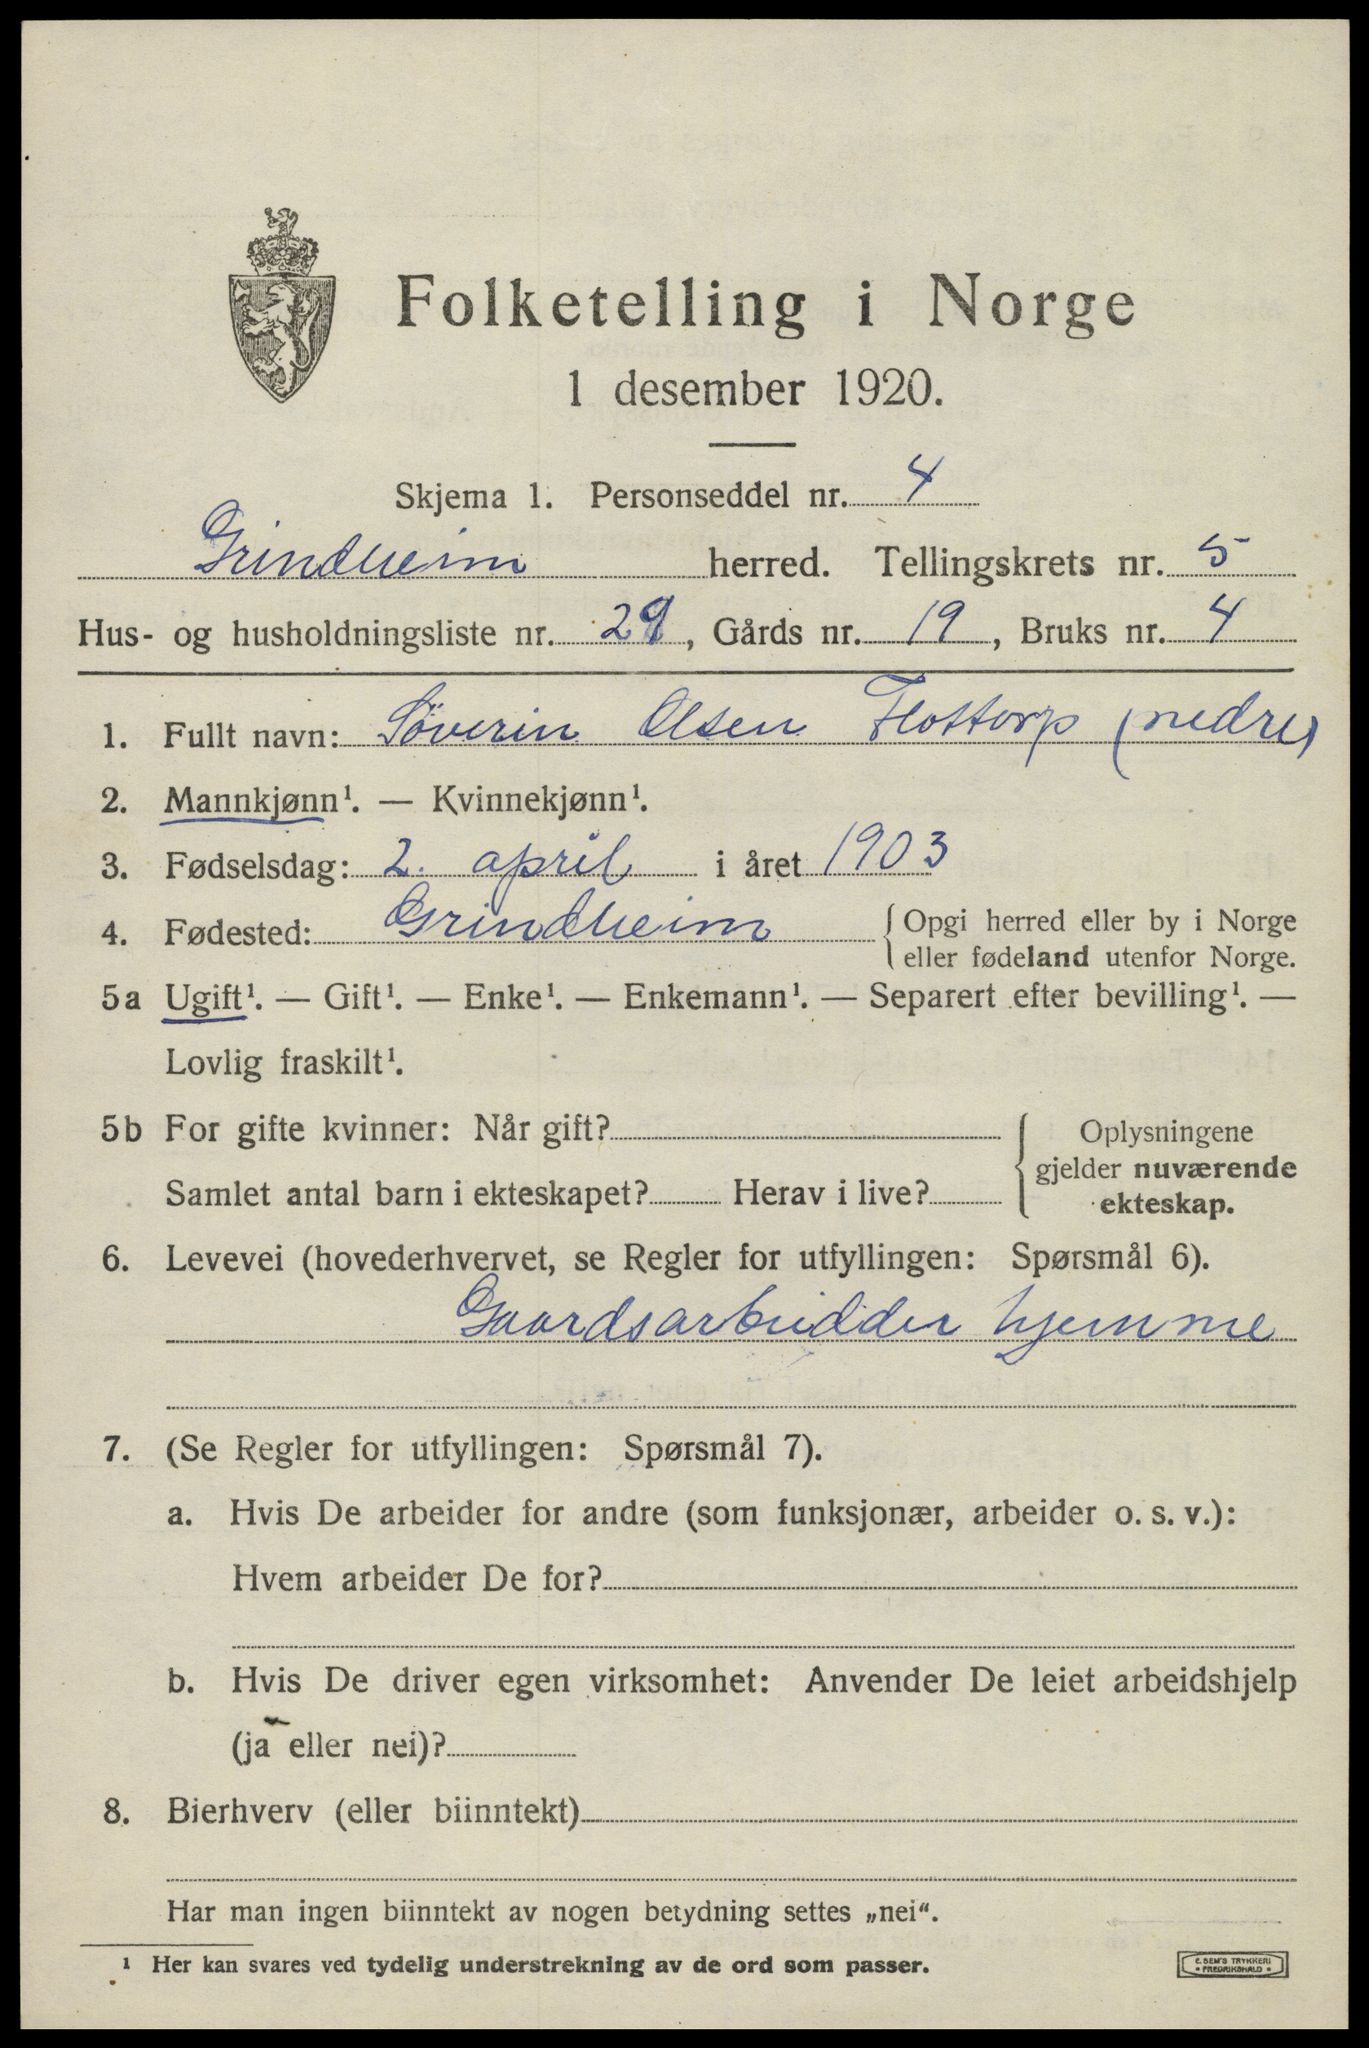 Folketelling i Norge
1 desember 1920.
Skjema 1. Personseddel nr. 4
Grindheim herred. Tellingskrets nr. 5
Hus- og husholdningsliste nr. 29, Gårds nr. 19, Bruks nr. 4
1. Fullt navn: Söverin Olsen Flottorp (nedre)
2. Mannkjønn¹. — Kvinnekjønn¹.
3. Fødselsdag: 2. april i året 1903
4. Fødested: Grindheim { Opgi herred eller by i Norge
eller fødeland utenfor Norge.
5a Ugift¹. — Gift¹. — Enke¹. — Enkemann¹. — Separert efter bevilling¹. —
Lovlig fraskilt¹.
5b For gifte kvinner: Når gift?
Samlet antal barn i ekteskapet? Herav i live?
Oplysningene
gjelder nuværende
ekteskap.
6. Levevei (hovederhvervet, se Regler for utfyllingen: Spørsmål 6).
Gaardsarbeidder hjemme
7. (Se Regler for utfyllingen: Spørsmål 7).
a. Hvis De arbeider for andre (som funksjonær, arbeider o. s. v.):
Hvem arbeider De for?
b. Hvis De driver egen virksomhet: Anvender De leiet arbeidshjelp
(ja eller nei)?
8. Bierhverv (eller biinntekt)
Har man ingen biinntekt av nogen betydning settes „nei“.
¹ Her kan svares ved tydelig understrekning av de ord som passer.
E. SEM'S TRYKKERI
FREDRIKSHALD